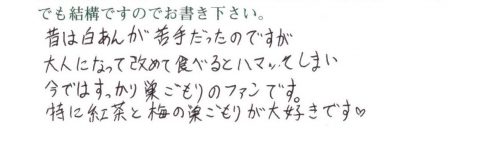 でも結構ですのでお書き下さい。
昔は白あんが苦手だったのですが
大人になって改めて食べるとハマってしまい
今ではすっかり巣ごもりのファンです。
特に紅茶と梅の巣ごもりが大好きです♡